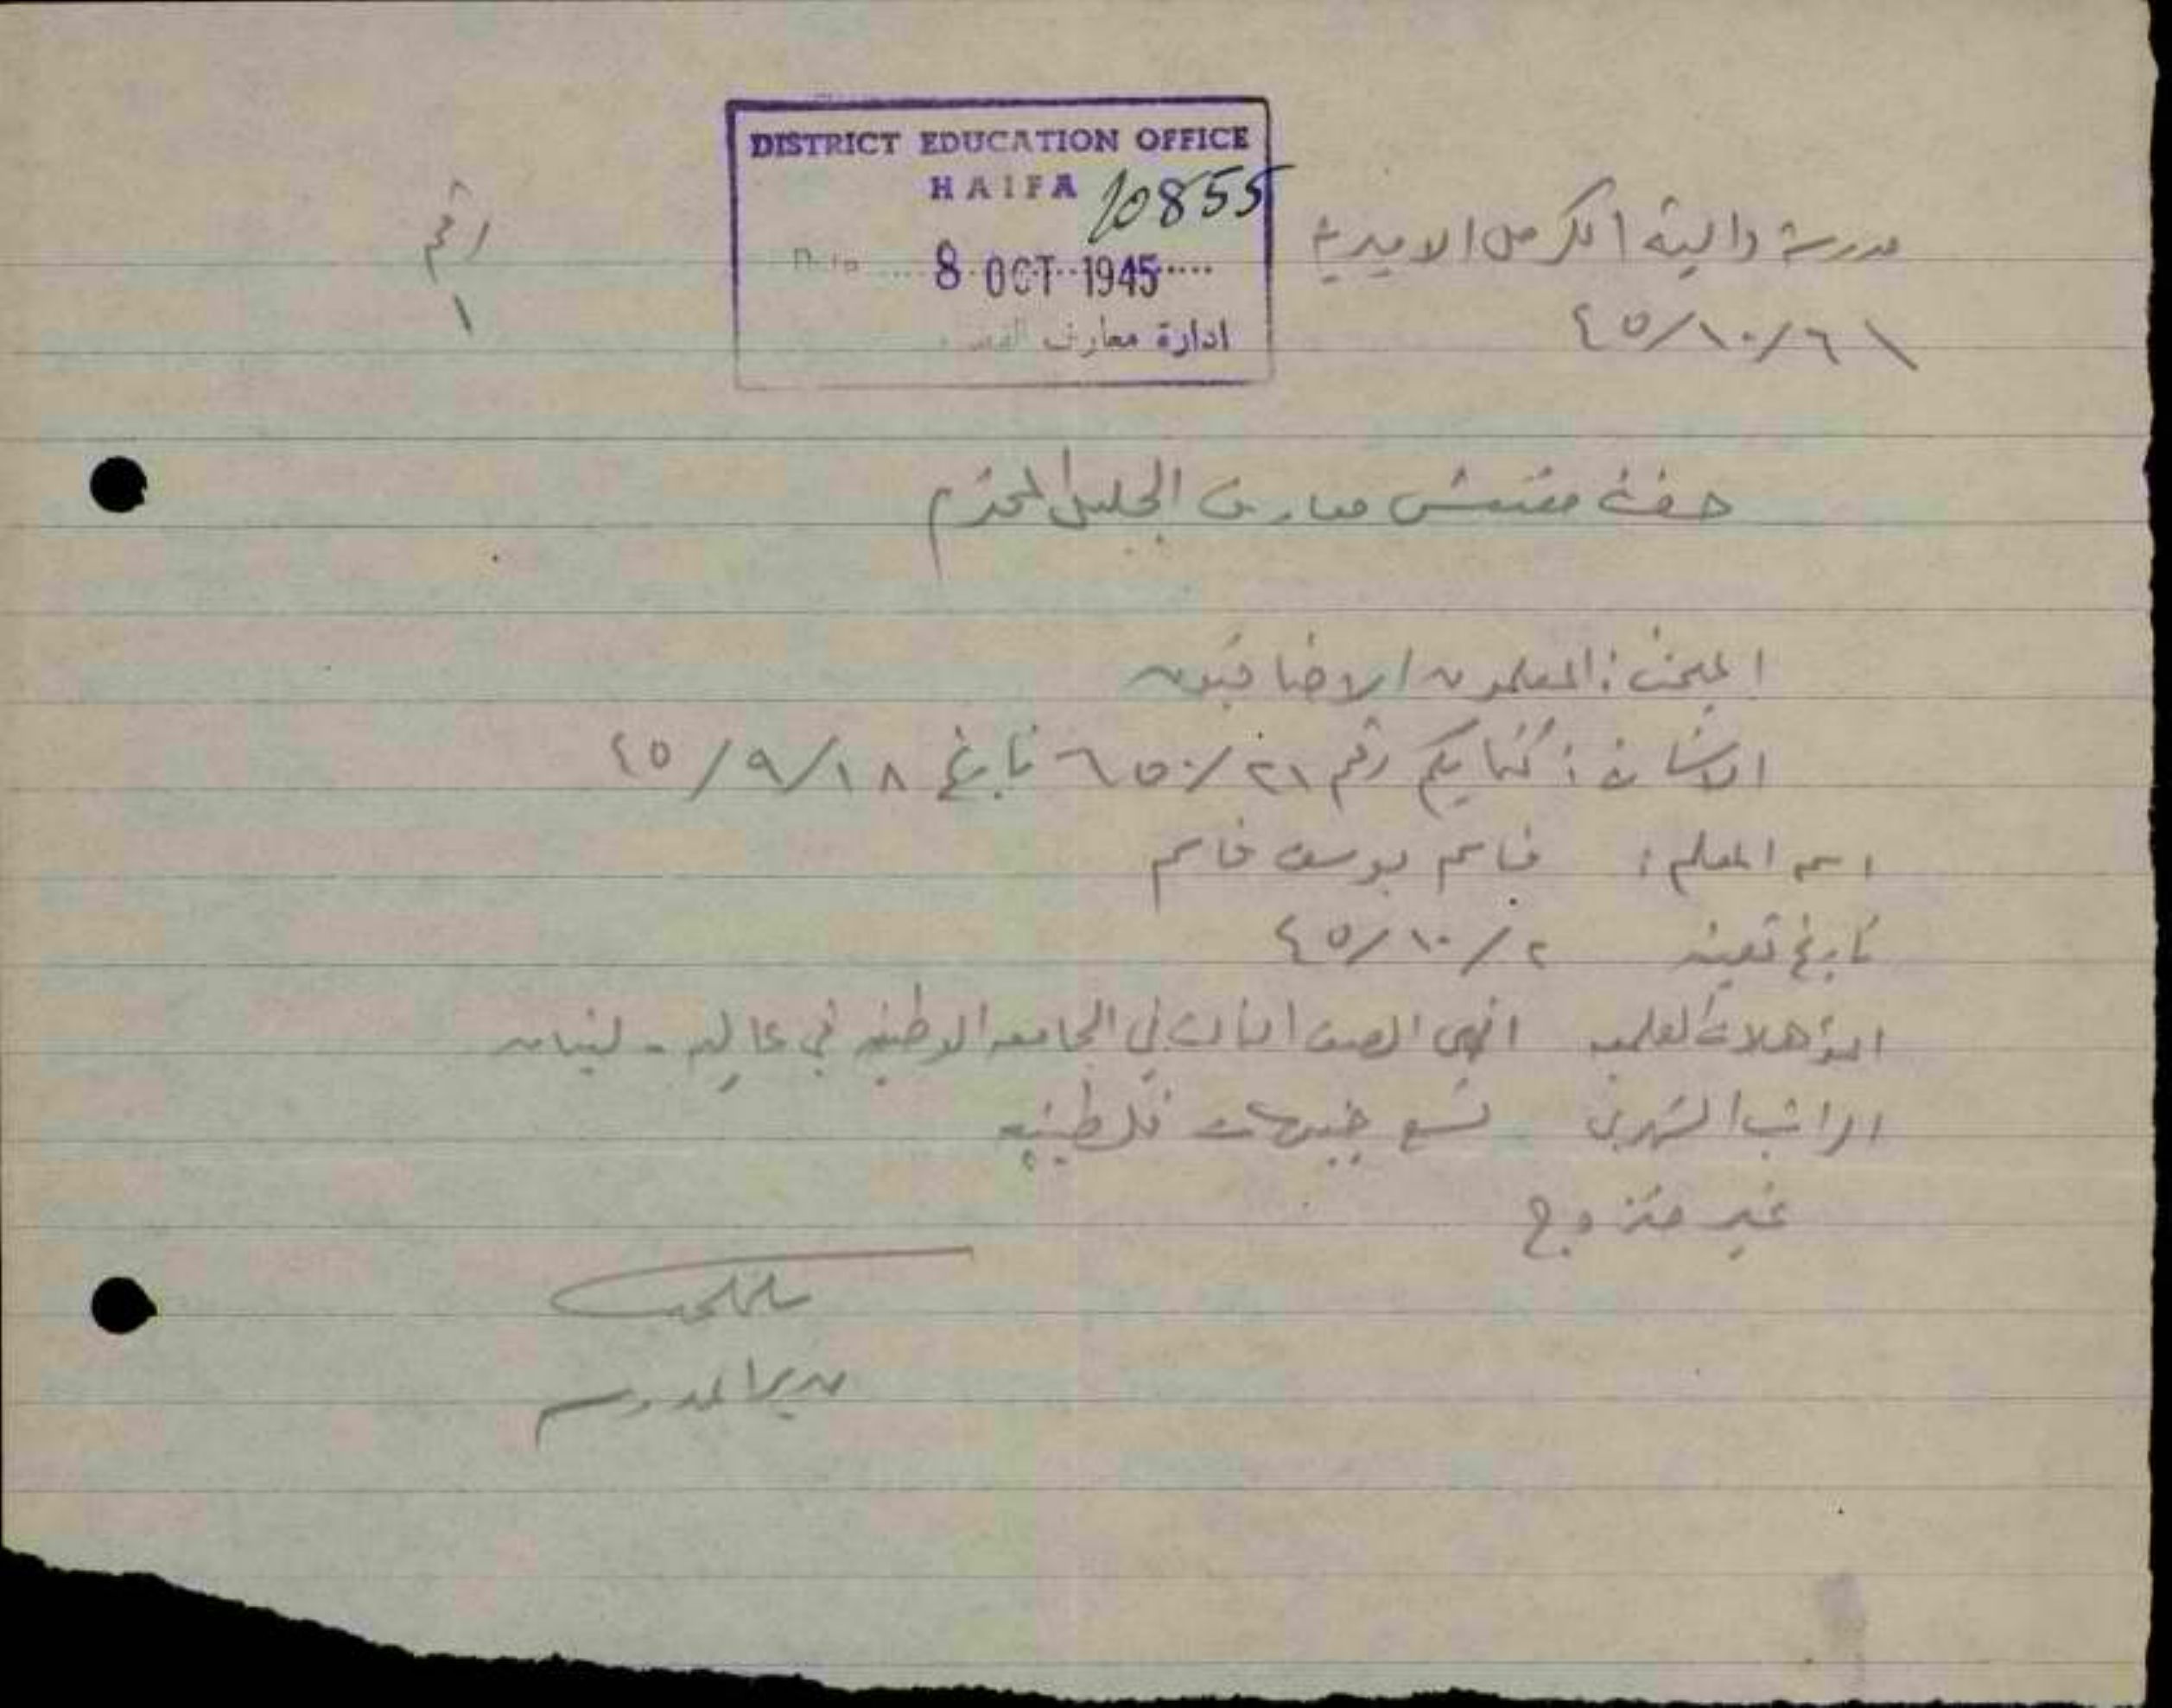 DISTRICT EDUCATION OFFICE
HAIFA 10855
Date .... 8 OCT 1945 ....
ادارة معارف
رقم
١
مدرسة دالية الكرمل الاميرية
٤٥/١٠/٦
حضرة مفتش معارف الجليل المحترم
المبحث : المعلمون الاضافيون
الاشارة : كتابكم رقم ٦٥٠/٢١ تاريخ ٤٥/٩/١٨
اسم المعلم : قاسم يوسف قاسم
تاريخ تعينه ٤٥/١٠/٢
المؤهلات العلميه انهى الصف الثالث في الجامعه الوطنيه في عاليه - لبنان
الراتب الشهري تسع جنيهات فلسطينيه
غير متزوج
مدير المدرسه